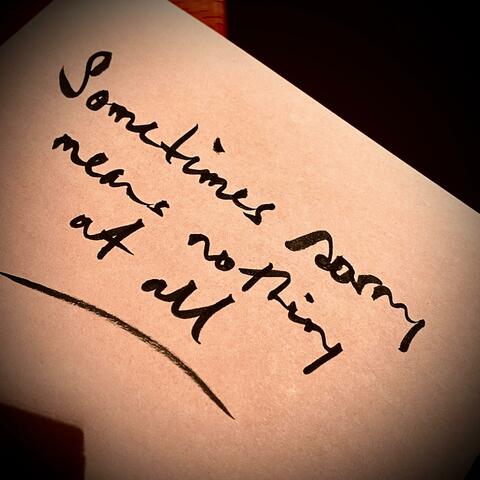 Sometimes sorry
means nothing
at all